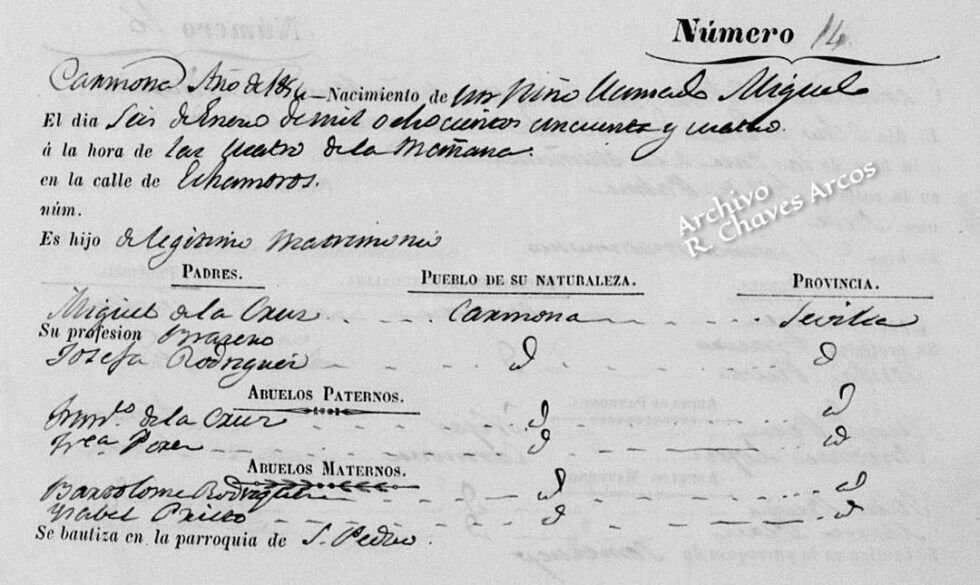 Número 14.
Carmona Año de 1854.—Nacimiento de un Niño llamado Miguel
El dia Seis de Enero de mil ochocientos cincuenta y cuatro.
á la hora de las cuatro de la Mañana.
en la calle de Chamorros.
núm.
Es hijo de legitimo Matrimonio
Archivo
R. Chaves Arcos
PADRES. PUEBLO DE SU NATURALEZA. PROVINCIA.
Miguel de la Cruz - - - Carmona - - - Sevilla
Su profesion Brazero
Josefa Rodriguez - - - - d - - - - d
ABUELOS PATERNOS.
de la Cruz - - - - d - - - - d
Frca Perez - - - - d - - - - d
ABUELOS MATERNOS.
Bartolome Rodriguez - - - - d - - - - d
Ysabel Prieto - - - - d - - - - d
Se bautiza en la parroquia de S. Pedro.